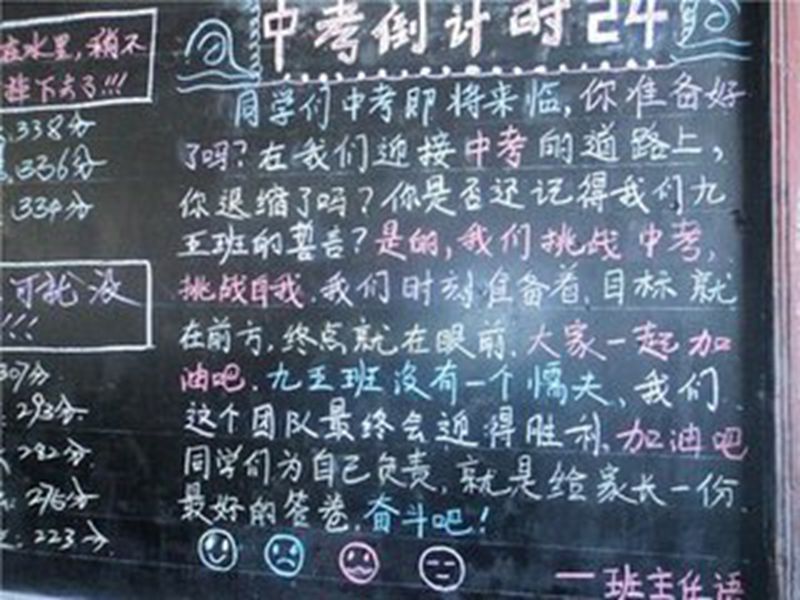 在水里,稍不
掉下去了!!!
338分
336分
334分
可就没
!!!
309分
293分
282分
276分
223分
中考倒计时24
同学们中考即将来临,你准备好
了吗?在我们迎接中考的道路上,
你退缩了吗?你是否还记得我们九
五班的誓言?是的,我们挑战中考,
挑战自我.我们时刻准备着.目标就
在前方,终点就在眼前.大家一起加
油吧.九五班没有一个懦夫、我们
这个团队最终会迎得胜利.加油吧
同学们为自己负责,就是给家长一份
最好的答卷.奋斗吧!
一班主任语